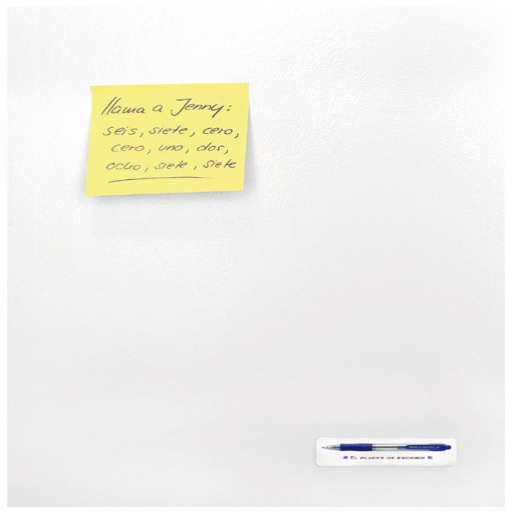 llama a Jenny:
seis, siete, cero,
cero, uno, dos,
ocho, siete, siete
EL PLACER DE ESCRIBIR